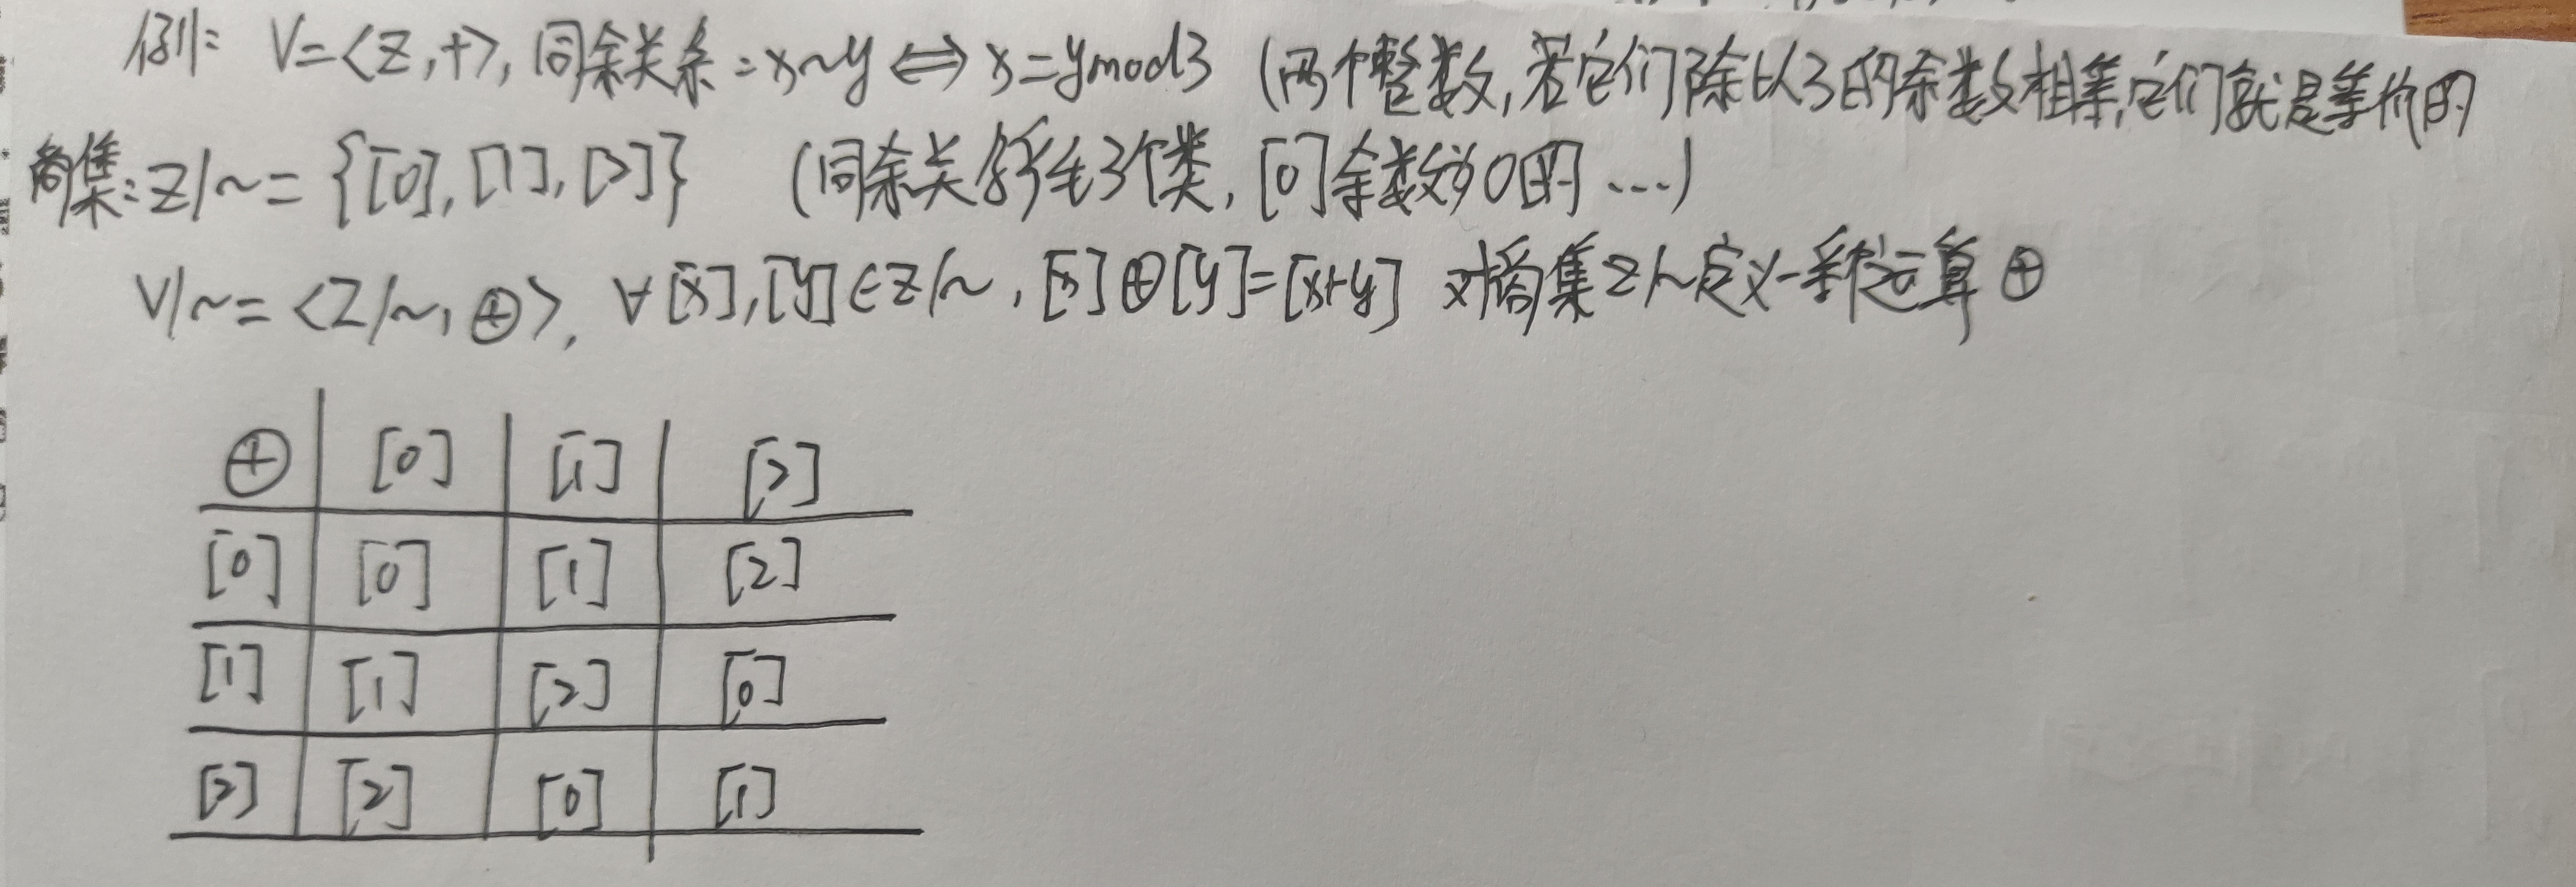 例: V=<Z,+>, 同余关系:x~y⇔x=ymod3 (两个整数,若它们除以3的余数相等,它们就是等价的
商集:Z/~={[0],[1],[2]} (同余关系所生3个类,[0]余数为0的...)
V/~=<Z/~,⊕>, ∀[x],[y]∈Z/~,[x]⊕[y]=[x+y] 对商集Z/~定义一种运算⊕
⊕ [0] [1] [2]
[0] [0] [1] [2]
[1] [1] [2] [0]
[2] [2] [0] [1]